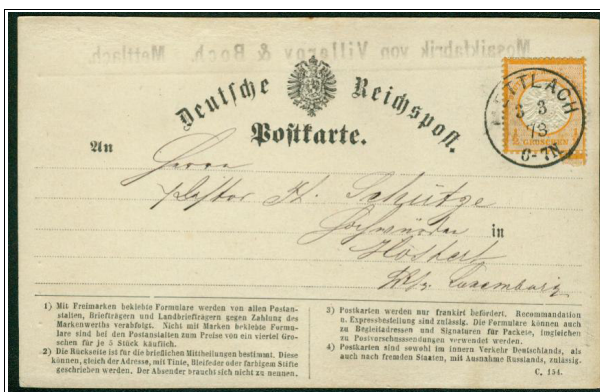 Mosaikfabrik von Villeroy & Boch. Mettlach.
Deutsche Reichspost.
Postkarte.
METTLACH
3 3
73
6-7N
½ GROSCHEN
An
Herrn
Pastor H. Schütze
Hochwürden
in
Hostert
Luxemburg
1) Mit Freimarken beklebte Formulare werden von allen Postan-
stalten, Briefträgern und Landbriefträgern gegen Zahlung des
Markenwerths verabfolgt. Nicht mit Marken beklebte Formu-
lare sind bei den Postanstalten zum Preise von ein viertel Gro-
schen für je 5 Stück käuflich.
2) Die Rückseite ist für die brieflichen Mittheilungen bestimmt. Diese
können, gleich der Adresse, mit Tinte, Bleifeder oder farbigem Stifte
geschrieben werden. Der Absender braucht sich nicht zu nennen.
3) Postkarten werden nur frankirt befördert. Recommandation
u. Expressbestellung sind zulässig. Die Formulare können auch
zu Begleitadressen und Signaturen für Packete, imgleichen
zu Postvorschusssendungen verwendet werden.
4) Postkarten sind sowohl im innern Verkehr Deutschlands, als
auch nach fremden Staaten, mit Ausnahme Russlands, zulässig.
C. 154.